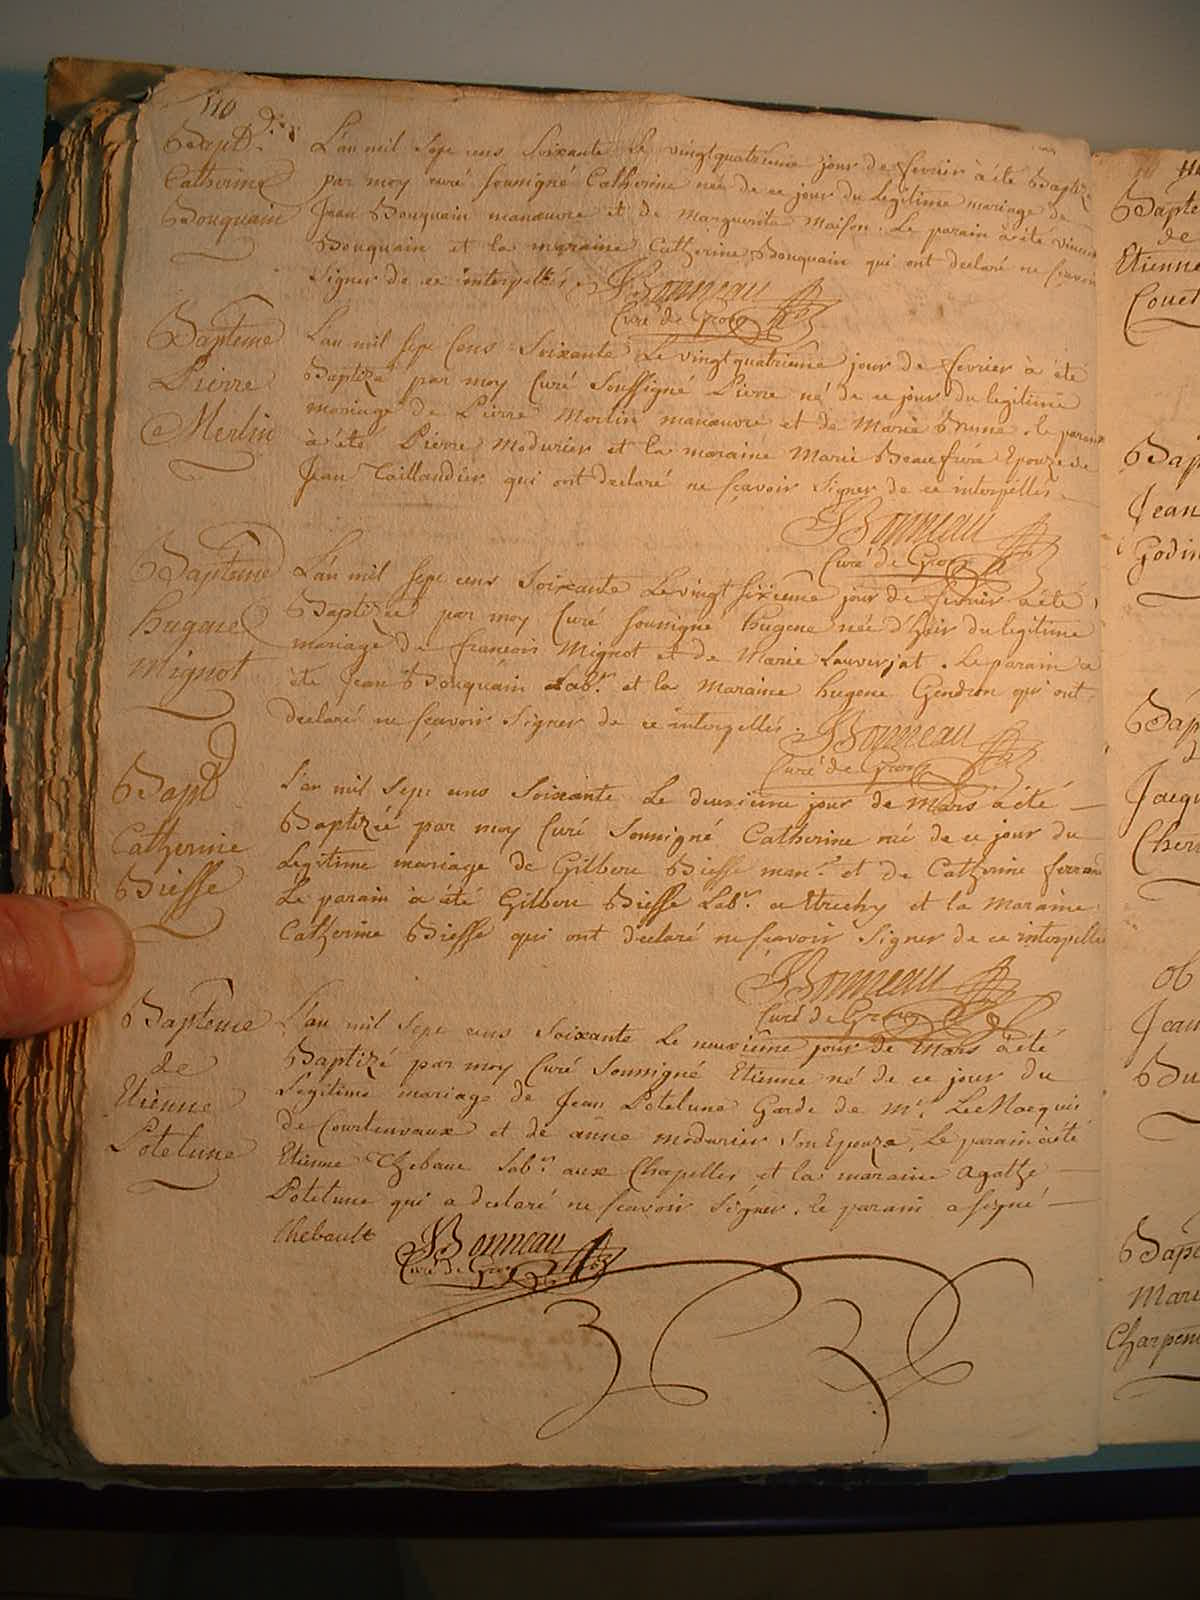 110
Bapt. de
Catherine
Bouquain
L'an mil sept cens soixante le vingtquatrieme jour de fevrier à été Baptizée
par moy curé soussigné Catherine née de ce jour du Legitime mariage de
Jean Bouquain manœuvre et de marguerite maison. Le parain à été vincent
Bouquain et la maraine Catherine Bouquain qui ont declaré ne sçavoir
signer de ce interpellés.
Bonneau
Curé de Gron
Bapteme
Pierre
Merlin
L'an mil sept Cens Soixante Le vingtquatrieme jour de fevrier à été
Baptizé par moy Curé Soussigné Pierre né de ce jour du legitime
mariage de Pierre Merlin manœuvre et de Marie Brune. le parain
à été Pierre Modurier et la maraine Marie Beaufrere Epouze de
Jean Taillandier qui ont declaré ne sçavoir signer de ce interpellés
Bonneau
Curé de Gron
Bapteme
hugene
Mignot
L'an mil sept cens Soixante Le vingt sixieme jour de fevrier à été
Baptizée par moy Curé soussigné hugene née d'hier du legitime
mariage de françois Mignot et de Marie Lauverjat. Le parain a
été Jean Bouquain Lab.r et la Maraine hugene Gendron qui ont
declaré ne sçavoir signer de ce interpellés.
Bonneau
Curé de Gron
Bapt
Catherine
Biesse
L'an mil sept cens Soixante Le deuxieme jour de Mars à été
Baptizée par moy Curé Soussigné Catherine né de ce jour du
Legitime mariage de Gilbert Biesse man.r et de Catherine ferrand
Le parain à été Gilbert Biesse Lab.r a Etrechy et la Maraine
Catherine Biesse qui ont declaré ne sçavoir signer de ce interpellés
Bonneau
Curé de Gron
Bapteme
de
Etienne
Potelune
L'an mil Sept cens Soixante Le neuxieme jour de Mars à été
Baptizé par moy Curé Soussigné Etienne né de ce jour du
Legitime mariage de Jean Potelune Garde de Mr. Le Marquis
de Courtenvaux et de anne modurier Son Epouze. Le parain à été
Etienne Thebaut Lab.r aux Chapelles et la maraine agathe
Potelune qui a declaré ne sçavoir Signer. Le parain a signé
thebault
Bonneau
Curé de Gron
Etienne
Couet
Jean
Godin
ob
Jean
Charpen